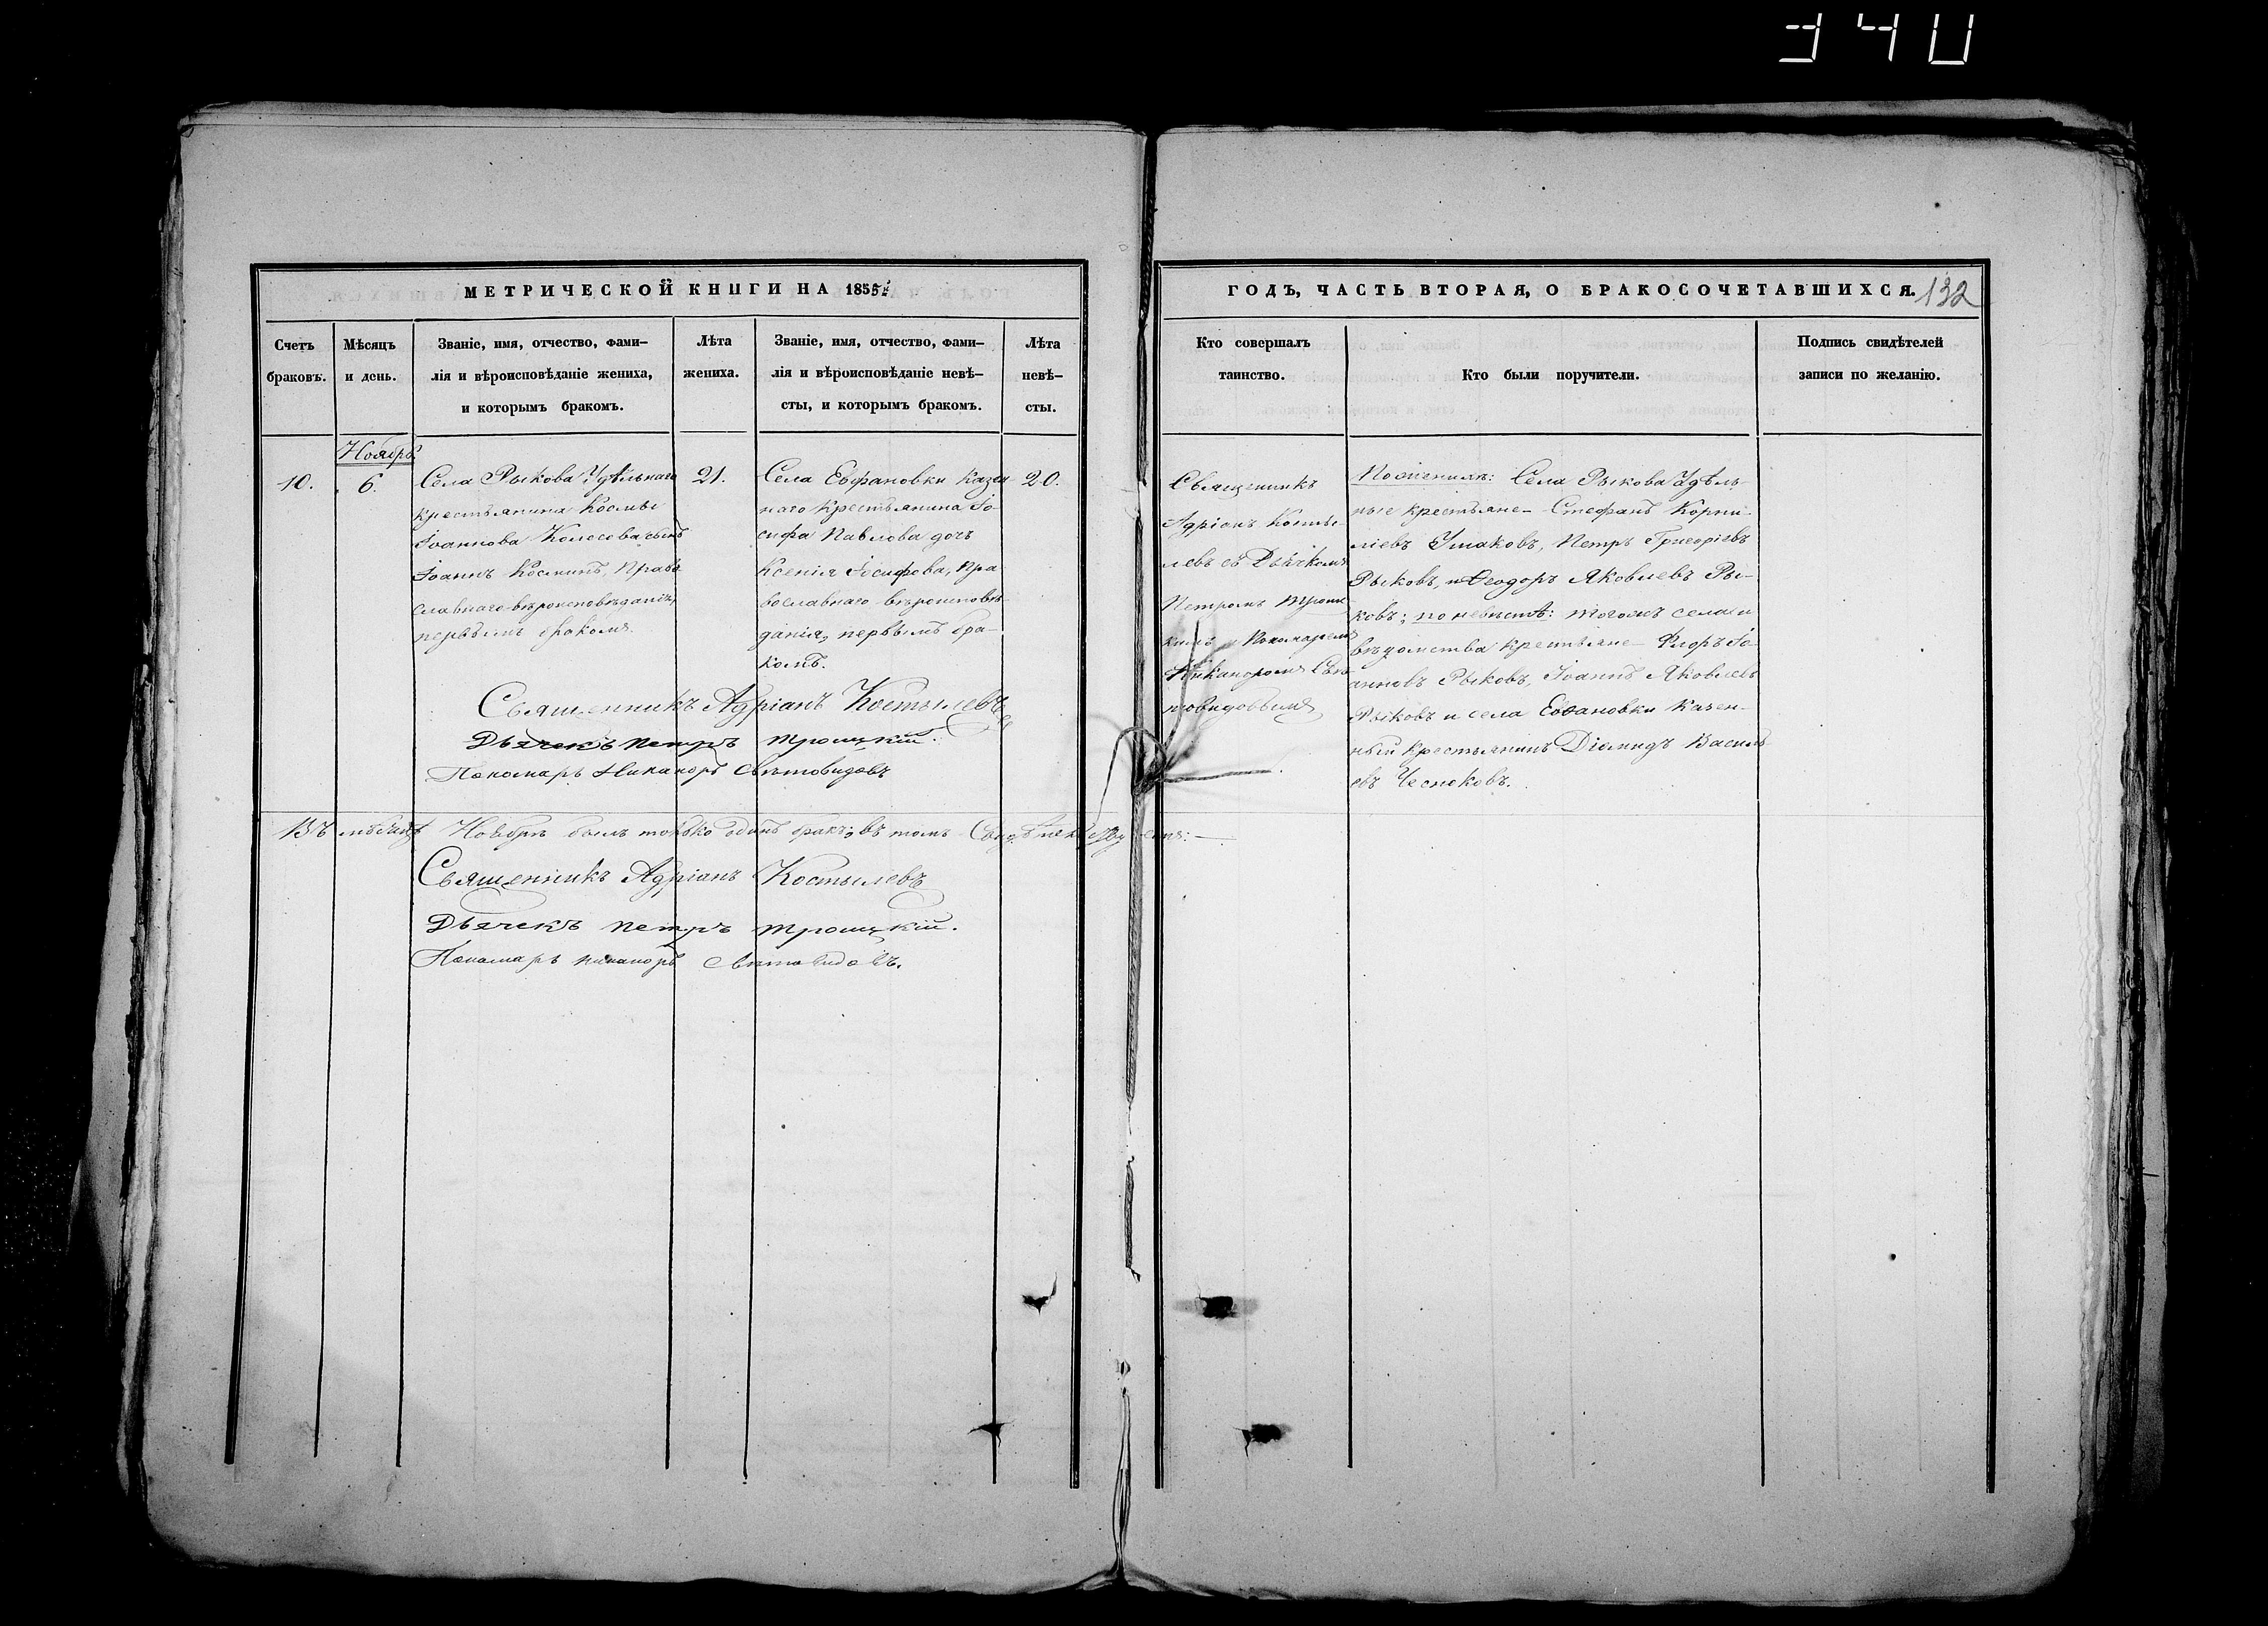 340
МЕТРИЧЕСКОЙ КНИГИ НА 1855
ГОДЪ, ЧАСТЬ ВТОРАЯ, О БРАКОСОЧЕТАВШИХСЯ.
132
Счетъ
браковъ.
Мѣсяцъ
и день.
Званіе, имя, отчество, фами-
лія и вѣроисповѣданіе жениха,
и которымъ бракомъ.
Лѣта
жениха.
Званіе, имя, отчество, фами-
лія и вѣроисповѣданіе невѣ-
сты, и которымъ бракомъ.
Лѣта
невѣ-
сты.
Кто совершалъ
таинство.
Кто были поручители.
Подпись свидѣтелей
записи по желанію.
Ноябрь
10.
6.
Села Рыкова Удѣльнаго
крестьянина Космы
Іоаннова Колесова сынъ
Іоаннъ Косминъ, Право
славнаго вѣроисповѣданія,
первымъ бракомъ.
21.
Села Евфановки Казен
наго крестьянина Іо-
сифа Павлова дочь
Ксенія Іосифова, Пра
вославнаго вѣроисповѣ-
данія, первымъ бра-
комъ.
20.
Священникъ
Адріанъ Косты-
левъ съ Дьячкомъ
Петромъ Троиц
кимъ и Пономаремъ
Никаноромъ Свѣ
товидовымъ
По женихѣ: Села Рыкова Удѣль-
ные крестьяне - Стефанъ Корни-
ліевъ Ушаковъ, Петръ Григоріевъ
Рыковъ, и Ѳеодоръ Яковлевъ Ры-
ковъ; по невѣстѣ: тогожъ села и
вѣдомства крестьяне - Флоръ Іо-
анновъ Рыковъ, Іоаннъ Яковлевъ
Рыковъ и села Евфановки Казен-
ный крестьянинъ Діомидъ Василь
евъ Чесноковъ.
Священникъ Адріанъ Костылевъ
Дьячекъ Петръ Троицкій.
Пономарь Никаноръ Свѣтовидовъ
Въ мѣсяцѣ Ноябрѣ былъ только одинъ бракъ, въ томъ
Священникъ Адріанъ Костылевъ
Дьячекъ Петръ Троицкій.
Пономарь Никаноръ Свѣтовидовъ.